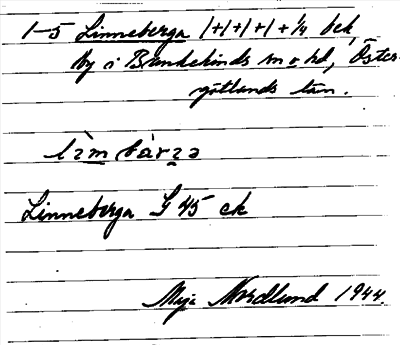 1-5 Linneberga 1+1+1+1+¼ bek,
by i Bankekinds sn o hd, Öster-
götlands län.
lìm bàrɜa
Linneberga G 45 ek
Maja Nordlund 1944.